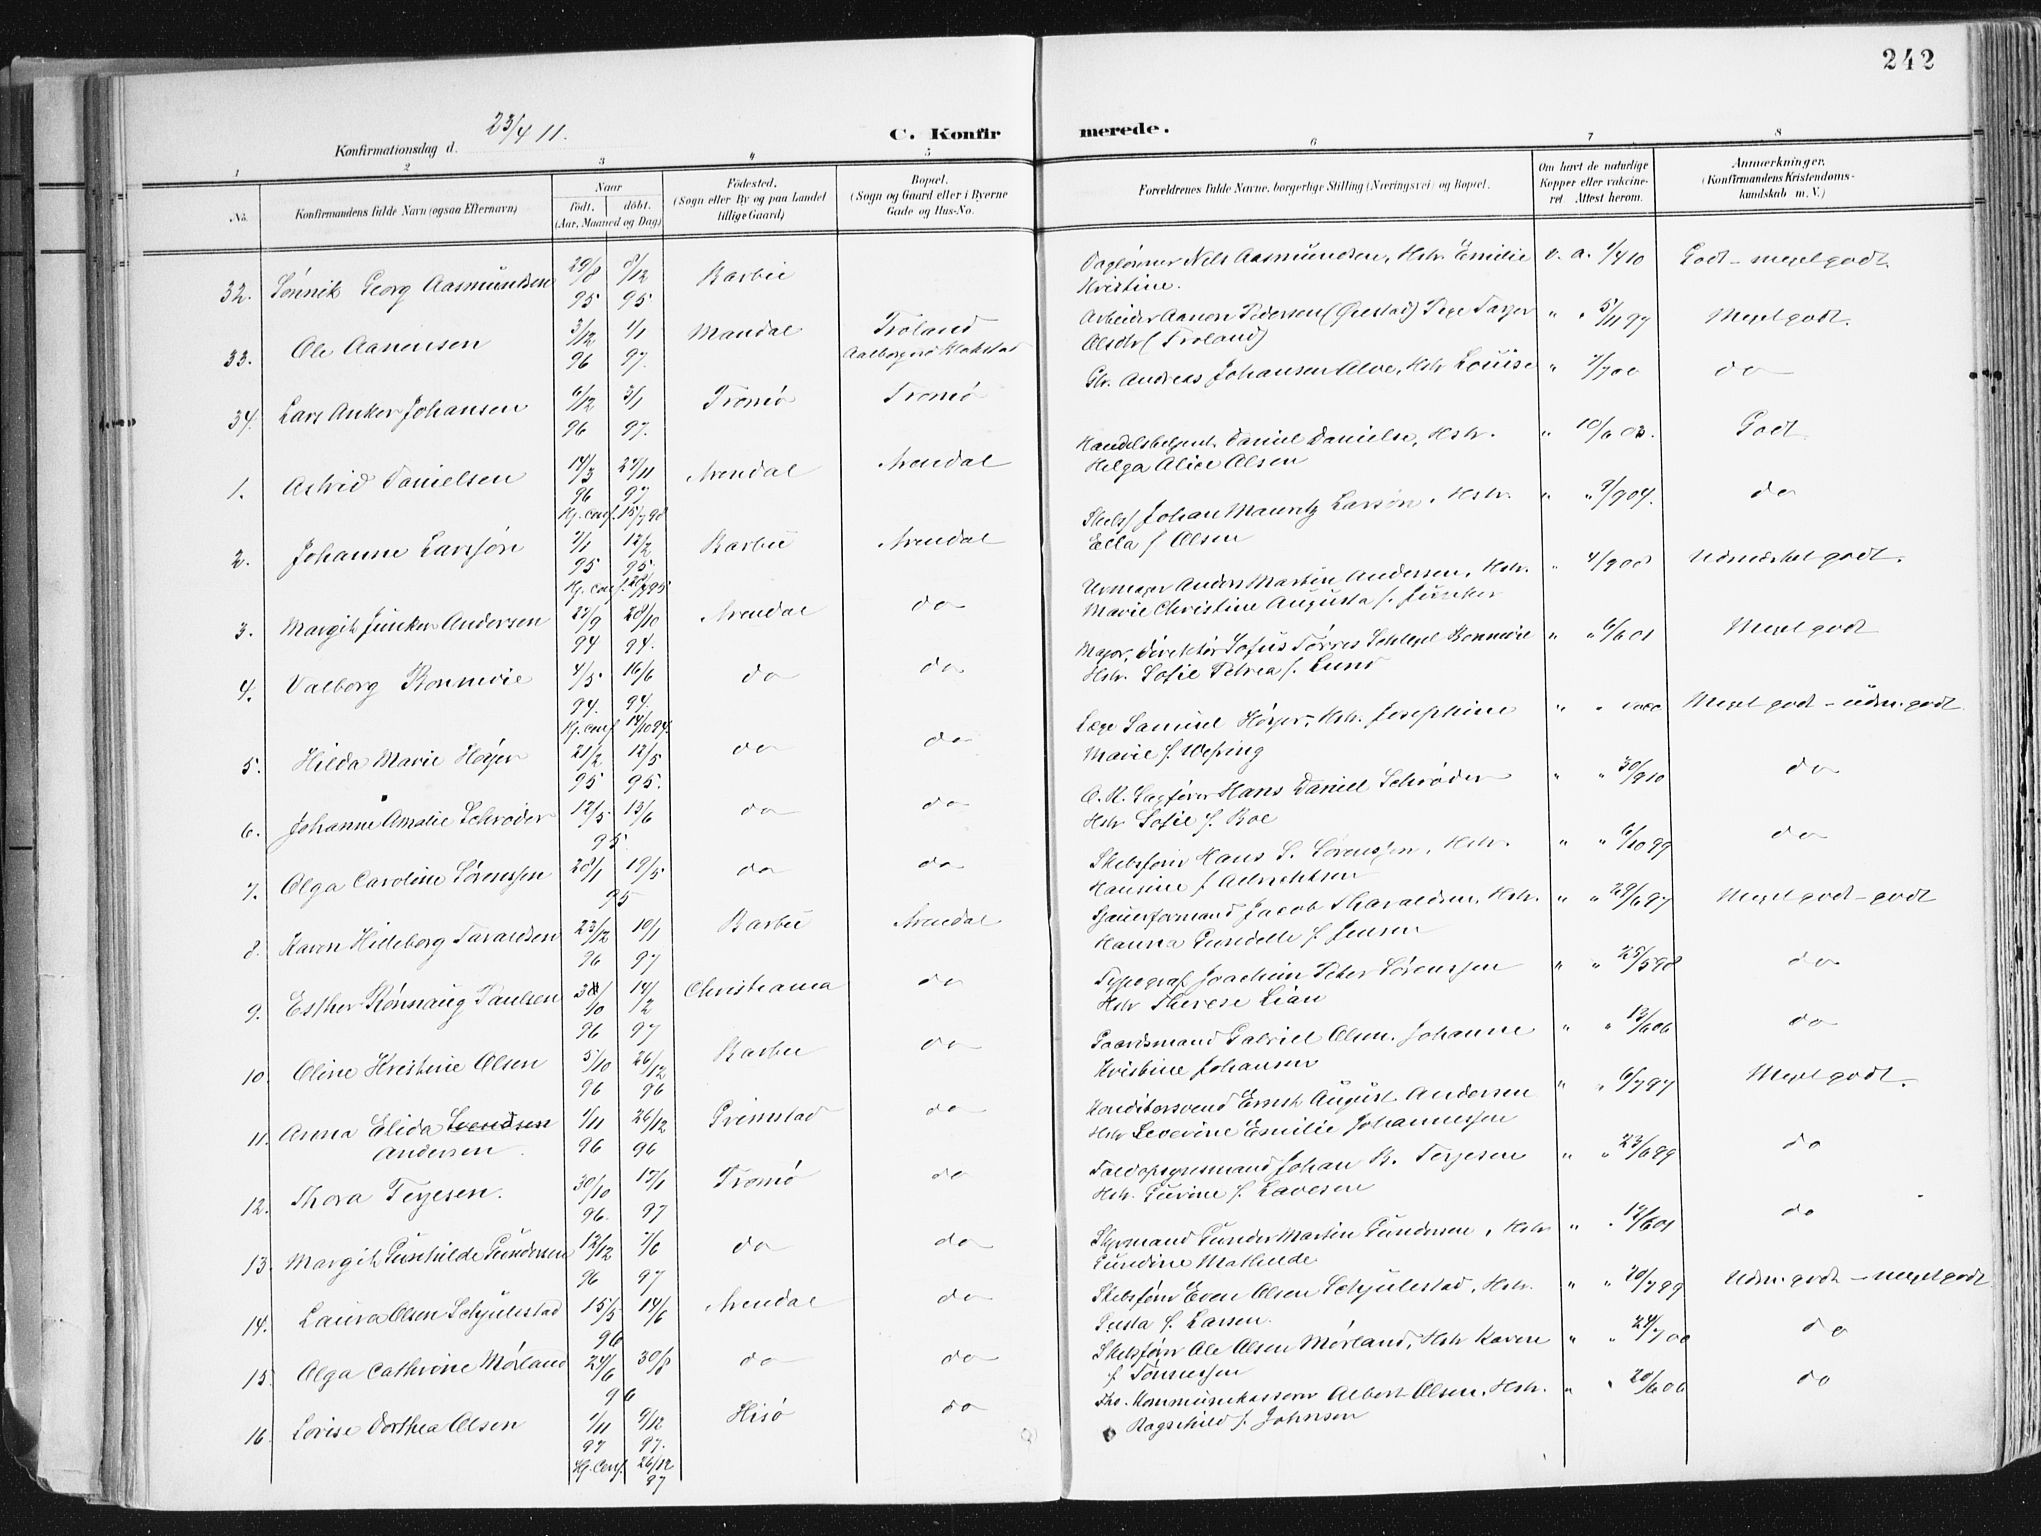 242
Konfirmationsdag d. 23/4 11.
C. Konfirmerede.
1 2 3 4 5 6 7 8
No. Konfirmandens fulde Navn (ogsaa Efternavn) Naar født, døbt. (Aar, Maaned og Dag) Fødested. (Sogn eller By og paa Landet tillige Gaard) Bopæl. (Sogn og Gaard eller i Byerne Gade og Hus-No. Forældrenes fulde Navne, borgerlige Stilling (Næringsvei) og Bopæl. Om havt de naturlige Kopper eller vakcineret. Attest herom. Anmærkninger. (Konfirmandens Kristendomskundskab m. V.)
32. Sønnik Georg Aasmundsen 29/8 95 8/12 95 Barbu Dagløner Nils Aasmundsen, Hstr. Emilie Kristine. v. a. 1/4 10 Godt - meget godt.
33. Ole Aanensen 3/12 96 1/1 97. Mandal Troland Aalborgnes Klokstad Arbeider Aanon Pedersen (Ørestad) Pige Targer Olsdtr (Troland) " " 5/11 97 Meget godt.
34. Lars Anker Johansen 6/12 96 3/1 97. Tromø Tromø Gbr. Andreas Johansen Alve, Hstr Louise " 7/7 00 do
1. Astrid Danielsen 14/3 96 27/11 97 Kj. conf. 15/7 98 Arendal Arendal Handelsbetjent. Daniel Danielse, Hstr. Helga Alice Olsen " 10/6 03. Godt
2. Johanne Larssøn 7/1 95 12/2 95. Kj. conf. Barbu Arendal Skibsf Johan Mauritz Larsøn, Hstr. Ella f. Olsen " " 9/9 04. do
3. Margit Juncker Andersen 27/9 94 28/10 94. Arendal do Urmager Anders Martin Andersen, Hstr. Marie Christine Augusta f. Juncker " 4/9 08 Udmærket godt.
4. Valborg Bonnevie 4/5 94. 16/6 94. Kj. conf. 14/10 94. do do Major, Direktør Jofus Tørres Schlegel Bonnevie Hstr. Sofie Petrea f. Lund " " 6/6 01 Meget godt
5. Hilda Marie Høyer 21/2 95 12/5 95. do do Læge Samuel Høyer, Hstr. Josephine Marie f. Wessing " " vacc Meget godt - udm. godt
6. Johanne Amalie Schrøder 12/5 13/6 95. do do O. R. Sagfører Hans Daniel Schrøder Hstr Sofie f. Boe " " 30/9 10 do
7. Olga Caroline Sørenssen 28/1 19/5 95 do do Skibsfører Hans S. Sørenssen, Hstr. Hansine f. Albrechtsen " " 6/10 99 do
8. Karen Hilleborg Taraldsen 23/12 96 10/1 97 Barbu Arendal Sjauerformand Jacob Tharaldsen, Hstr. Hanna Gunelle f. Jensen " " 29/6 97 Meget godt - godt
9. Esther Rønnaug Paulsen 31/10 96 14/2 97 Christiania do Typograf Joachim Peter Sørenssen Hstr Therese Lian " " 25/5 98 do
10. Oline Kristine Olsen 5/10 96 26/12 96 Barbu do Gaardsmand Gabriel Olsen. Johanne Kristine Johansen " " 13/6 06 do
11. Anna Elida Svendsen Andersen. 1/11 96 26/12 96 Grimstad do Konditorsvend Ernst August Andersen Hstr Severine Emilie Johannessen " 6/7 97 Meget godt.
12. Thora Terjesen. 30/10 96. 17/1 97 Tromø do Toldopsynsmand Johan B. Terjesen Hstr. Gurine f. Lavesen " " 23/6 99 do
13. Margit Gunhilde Gundersen 12/12 96 7/6 97 do do Styrmand Gunder Martin Gundersen, Hstr Gundine Mathilde " 12/6 01 do
14. Laura Olsen Schjulestad 15/5 14/6 96 Arendal do Skibsfører Even Olsen Schjulestad, Hstr. Gusta f. Larsen. " " 20/7 99 Udm. godt - meget godt
15. Olga Cathrine Mørland 24/6 30/8 96 do do Skibsfører Ole Olsen Mørland, Hstr Karen f. Tønnessen " " 24/7 00 do
16. Lovise Dorthea Olsen 1/11 97 9/12 97. Kj. conf. 26/12 97 Hisø do Fho. Kommunekasserer Albert Olsen, Hstr. Ragnhild f. Johnsen " " 20/6 06 do